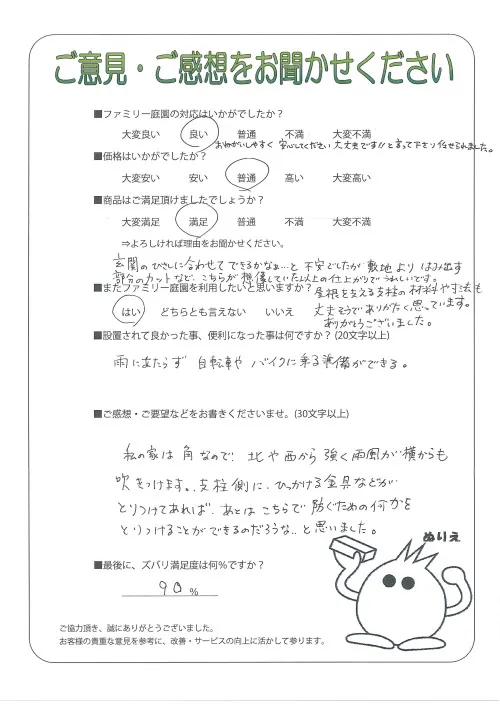 ご意見・ご感想をお聞かせください
■ファミリー庭園の対応はいかがでしたか？
大変良い 良い 普通 不満 大変不満
おねがいしやすく 安心してください 大丈夫です!! と言って下さり 任せられました。
■価格はいかがでしたか？
大変安い 安い 普通 高い 大変高い
■商品はご満足頂けましたでしょうか？
大変満足 満足 普通 不満 大変不満
⇒よろしければ理由をお聞かせください。
玄関のひさしに合わせてできるかなぁ…と 不安でしたが 敷地より はみ出す
部分のカットなど、こちらが想像していた以上の仕上がりでうれしいです。
■またファミリー庭園を利用したいと思いますか？
屋根を支える支柱の材料や寸法も
はい どちらとも言えない いいえ
大丈夫そうでありがたく思っています。
ありがとうございました。
■設置されて良かった事、便利になった事は何ですか？(20文字以上)
雨にあたらず 自転車や バイクに乗る準備ができる。
■ご感想・ご要望などをお書きくださいませ。(30文字以上)
私の家は 角なので! 北や西から 強く雨風が 横からも
吹きつけます。支柱側に、ひっかける金具などが
とりつけてあれば、あとは こちらで 防ぐための何かを
とりつけることができるのだろうな.. と思いました。
ぬりえ
■最後に、ズバリ満足度は何%ですか？
90 %
ご協力頂き、誠にありがとうございました。
お客様の貴重な意見を参考に、改善・サービスの向上に活かして参ります。